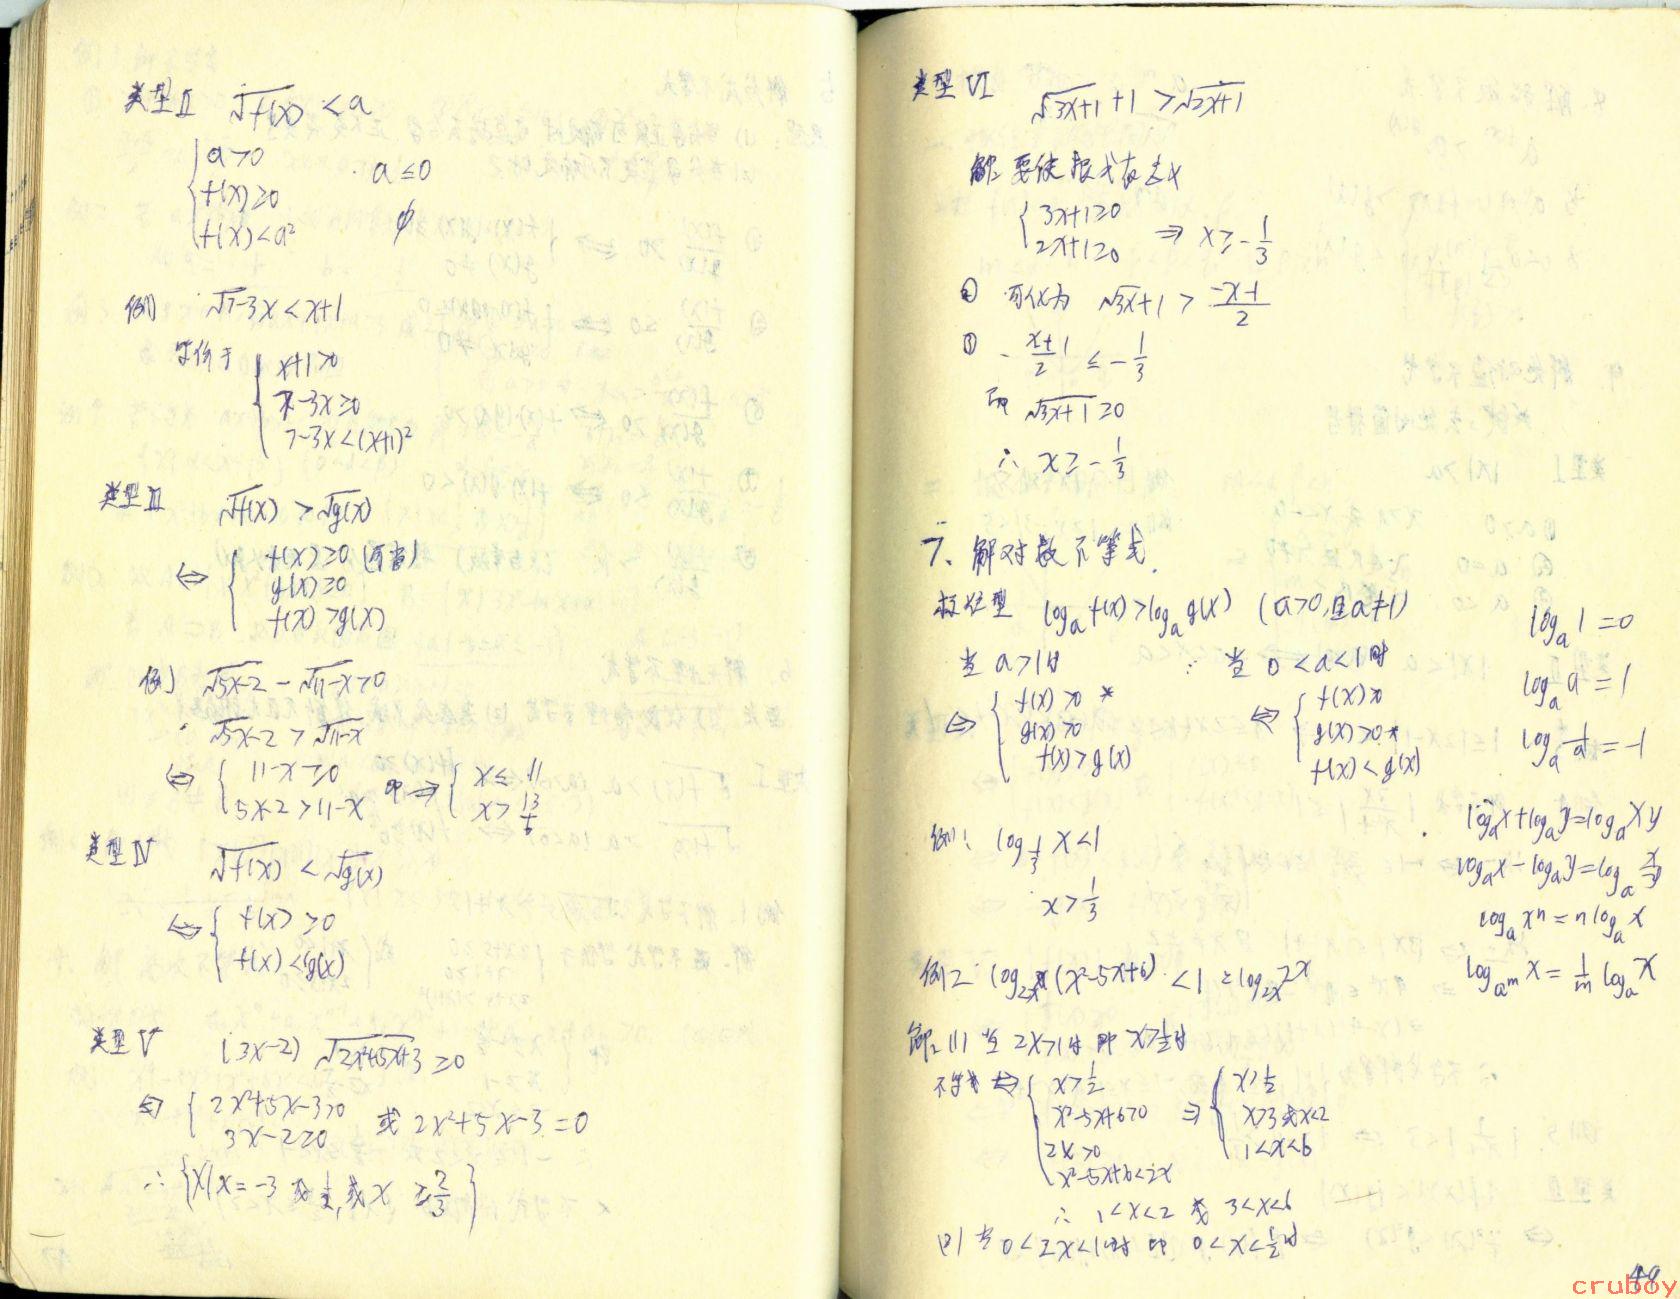 类型Ⅱ √f(x) < a
{ a>0
f(x)≥0
f(x)<a²
a≤0
φ
例 √7-3x < x+1
等价于 { x+1>0
7-3x≥0
7-3x<(x+1)²
类型Ⅲ √f(x) > √g(x)
⇔ { f(x)≥0 (可省)
g(x)≥0
f(x)>g(x)
例 √5x-2 - √11-x>0
√5x-2 > √11-x
⇔ { 11-x≥0
5x-2>11-x
即⇒ { x≤11
x>13/6
类型Ⅳ √f(x) < √g(x)
⇔ { f(x)≥0
f(x)<g(x)
类型Ⅴ (3x-2) √2x²+5x+3 ≥0
⇔ { 2x²+5x-3>0
3x-2≥0
或 2x²+5x-3=0
∴ {x|x=-3 或 1/2, 或 x ≥2/3}
类型Ⅵ
√3x+1 +1 >√2x+1
解: 要使根式有意义
{ 3x+1≥0
2x+1≥0
⇒ x≥-1/3
② 可化为 √3x+1 > -x-1/2
③ -x+1/2 ≤ -1/3
而 √3x+1≥0
∴ x≥-1/3
7、解对数不等式.
log_a f(x)>log_a g(x) (a>0,且a≠1)
当 a>1时
⇔ { f(x)>0 *
g(x)>0
f(x)>g(x)
当 0<a<1时
⇔ { f(x)>0
g(x)>0 *
f(x)<g(x)
log_a 1=0
log_a a=1
log_a 1/a=-1
log_a x+log_a y=log_a xy
log_a x-log_a y=log_a x/y
log_a xⁿ=n log_a x
log_aᵐ x=1/m log_a x
例1: log_1/3 x<1
x>1/3
例2: log_2x (x²-5x+6) <1=log_2x 2x
解: (1) 当 2x>1时 即 x>1/2时
不等式⇔ { x>1/2
x²-5x+6>0
2x>0
x²-5x+6<2x
⇒ { x>1/2
x>3或x<2
1<x<6
∴ 1<x<2 或 3<x<6
(2) 当0<2x<1时 即 0<x<1/2时
48
cruboy